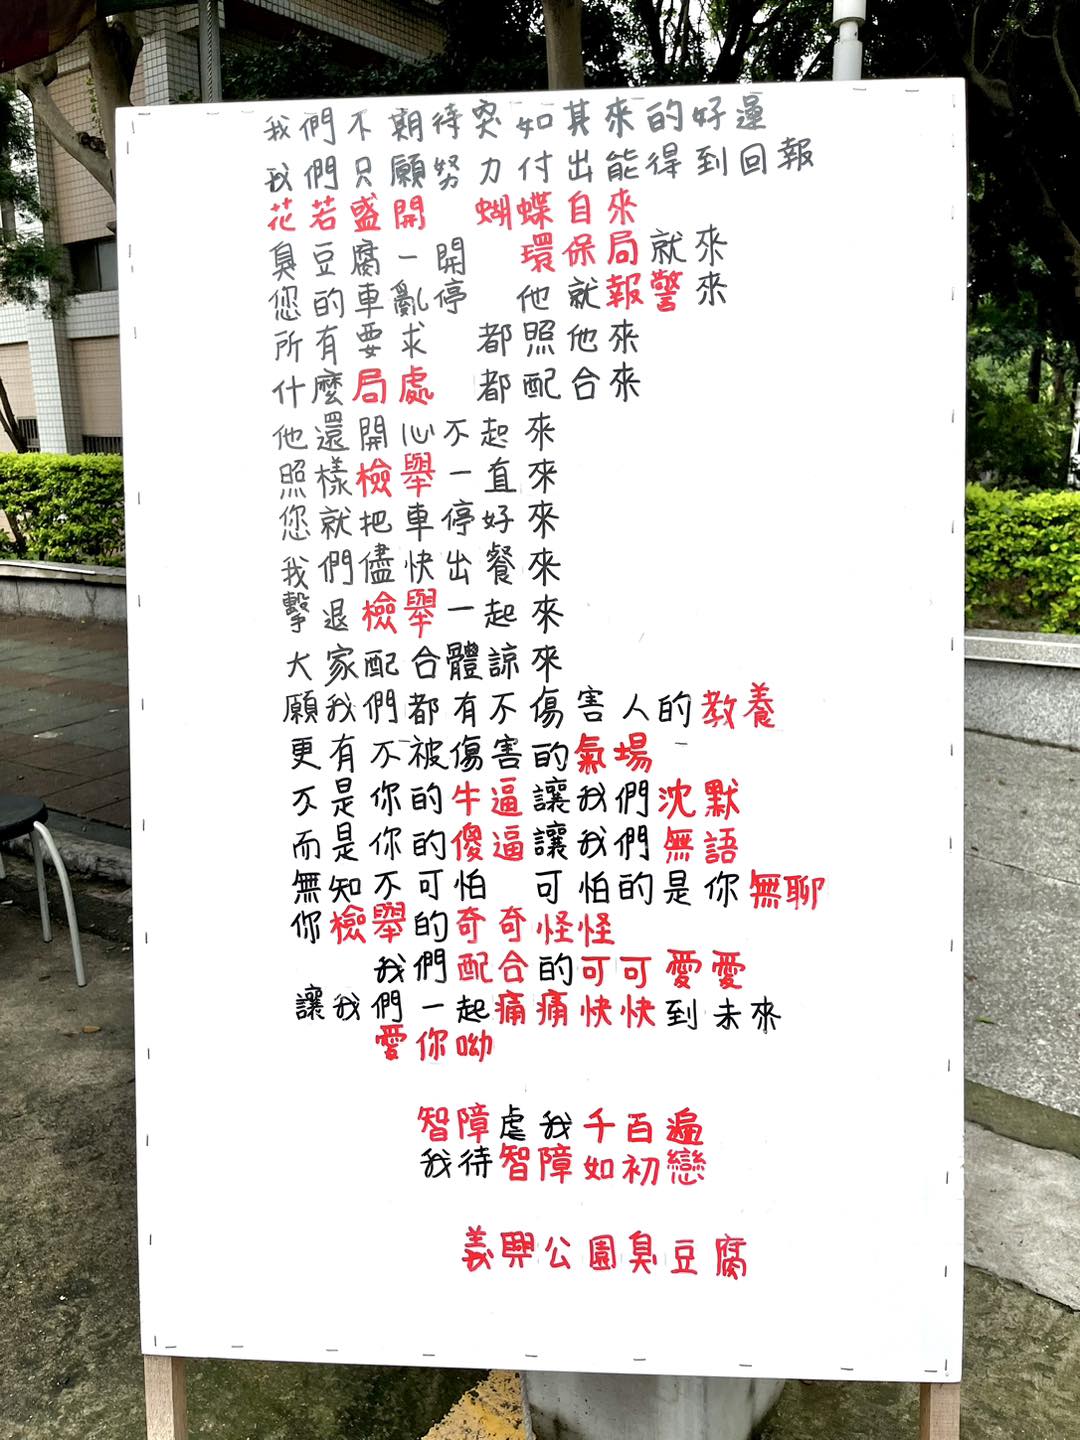 我們不期待突如其來的好運
我們只願努力付出能得到回報
花若盛開 蝴蝶自來
臭豆腐一開 環保局就來
您的車亂停 他就報警來
所有要求 都照他來
什麼局處 都配合來
他還開心不起來
照樣檢舉一直來
您就把車停好來
我們儘快出餐來
擊退檢舉一起來
大家配合體諒來
願我們都有不傷害人的教養
更有不被傷害的氣場
不是你的牛逼讓我們沈默
而是你的傻逼讓我們無語
無知不可怕 可怕的是你無聊
你檢舉的奇奇怪怪
我們配合的可可愛愛
讓我們一起痛痛快快到未來
愛你呦
智障虐我千百遍
我待智障如初戀
義興公園臭豆腐